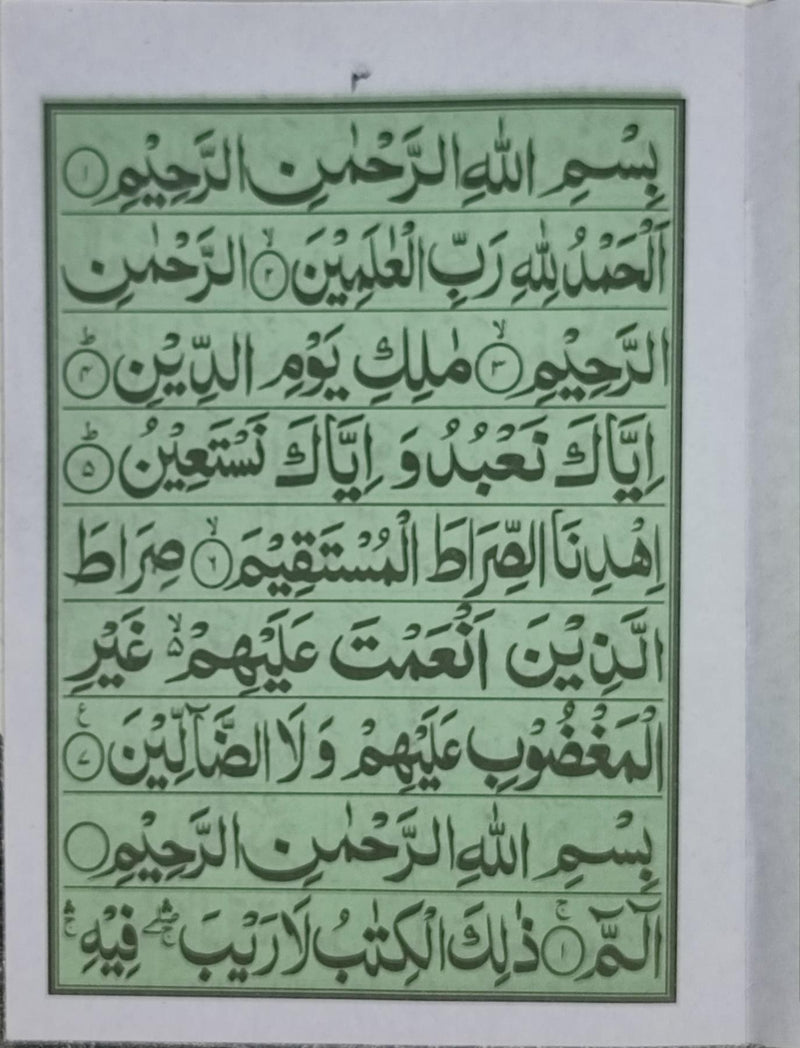 ٣
بِسْمِ اللهِ الرَّحْمٰنِ الرَّحِيْمِ ۝١
اَلْحَمْدُ لِلّٰهِ رَبِّ الْعٰلَمِيْنَ ۙ۝٢ الرَّحْمٰنِ
الرَّحِيْمِ ۙ۝٣ مٰلِكِ يَوْمِ الدِّيْنِ ؕ۝۴
اِيَّاكَ نَعْبُدُ وَ اِيَّاكَ نَسْتَعِيْنُ ؕ۝۵
اِهْدِنَا الصِّرَاطَ الْمُسْتَقِيْمَ ۙ۝۶ صِرَاطَ
الَّذِيْنَ اَنْعَمْتَ عَلَيْهِمْ ۙ۵ غَيْرِ
الْمَغْضُوْبِ عَلَيْهِمْ وَلَا الضَّآلِّيْنَ ع۝٧
بِسْمِ اللهِ الرَّحْمٰنِ الرَّحِيْمِ ۝
الٓمّٓ ۚ۝١ ذٰلِكَ الْكِتٰبُ لَا رَيْبَ ۛۖۚ فِيْهِ ۛۚ